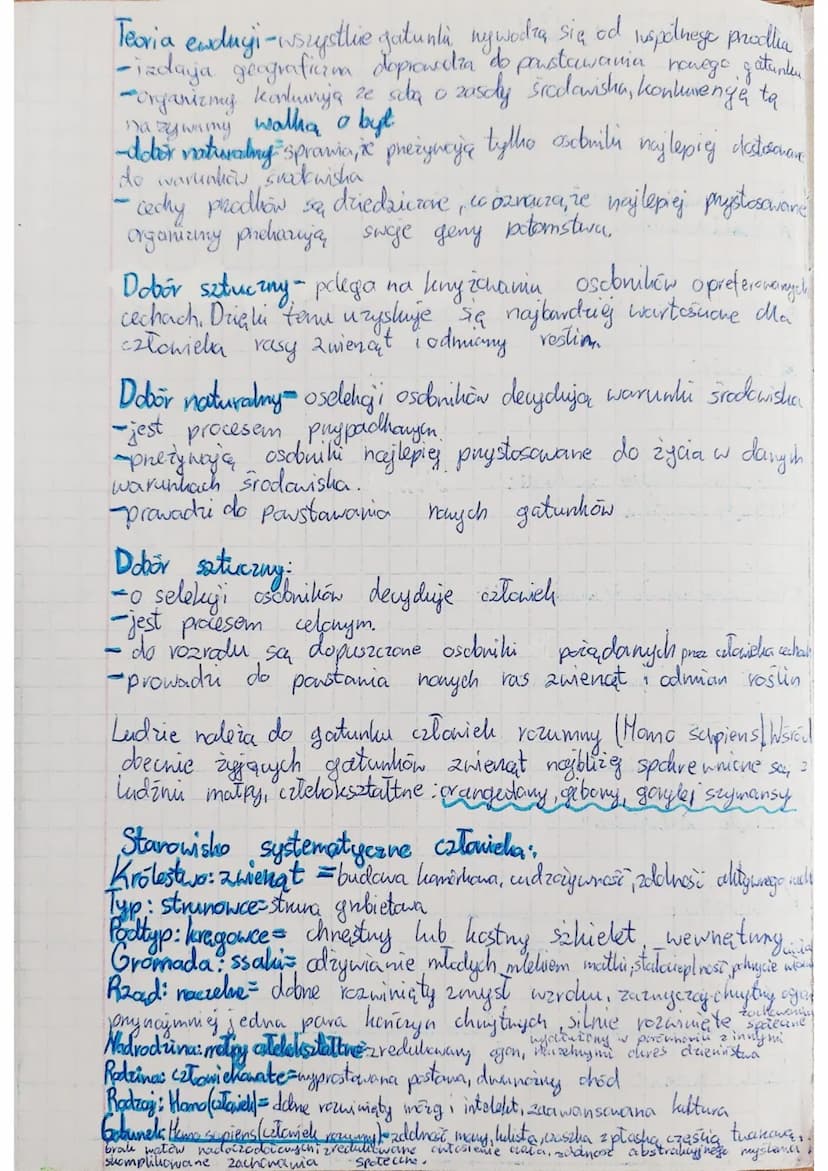 Teoria ewolucji - wszystkie gatunki wywodzą się od wspólnego przodka
- izolacja geograficzna doprowadza do powstawania nowego gatunku
- organizmy konkurują ze sobą o zasoby środowiska, konkurencję tą
nazywamy walką o byt
- dobór naturalny - sprawia, że przeżywają tylko osobniki najlepiej dostosowane
do warunków środowiska
- cechy przodków są dziedziczone, co oznacza, że najlepiej przystosowane
organizmy przekazują swoje geny potomstwu.
Dobór sztuczny - polega na krzyżowaniu osobników o preferowanych
cechach. Dzięki temu uzyskuje się najbardziej wartościowe dla
człowieka rasy zwierząt i odmiany roślin
Dobór naturalny - o selekcji osobników decydują warunki środowiska
- jest procesem przypadkowym
- przeżywają osobniki najlepiej przystosowane do życia w danych
warunkach środowiska.
- prowadzi do powstawania nowych gatunków
Dobór sztuczny:
- o selekcji osobników decyduje człowiek
- jest procesem celowym.
- do rozrodu są dopuszczone osobniki pożądanych przez człowieka cechach
- prowadzi do powstania nowych ras zwierząt i odmian roślin
Ludzie należą do gatunku człowiek rozumny (Homo sapiens) Wśród
obecnie żyjących gatunków zwierząt najbliżej spokrewnione są z
ludźmi małpy, człekokształtne: orangutany, gibony, goryle i szympansy
Stanowisko systematyczne człowieka:
Królestwo: zwierząt = budowa komórkowa, cudzożywność, zdolność aktywnego ruchu
Typ: strunowce = struna grzbietowa
Podtyp: kręgowce = chrzęstny lub kostny szkielet wewnętrzny
Gromada: ssaki = odżywianie młodych mlekiem matki, stałocieplność, pokrycie włosami
Rząd: naczelne = dobrze rozwinięty zmysł wzroku, zazwyczaj chwytny ogon
przynajmniej jedna para kończyn chwytnych, silnie rozwinięte zachowania społeczne
Nadrodzina: małpy człekokształtne = zredukowany ogon, wydłużony w porównaniu z innymi naczelnymi okres dzieciństwa
Rodzina: człowiekowate = wyprostowana postawa, dwunożny chód
Rodzaj: Homo (człowiek) = dobrze rozwinięty mózg i intelekt, zaawansowana kultura
Gatunek: Homo sapiens (człowiek rozumny) - zdolność mowy, kulista czaszka z płaską częścią twarzową,
brak wałów nadoczodołowych, zredukowane owłosienie ciała, zdolność abstrakcyjnego myślenia
skomplikowane zachowania społeczne.